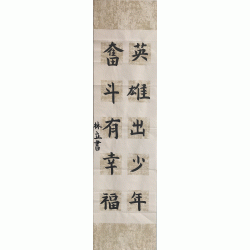 英雄出少年
奋斗有幸福
林立書